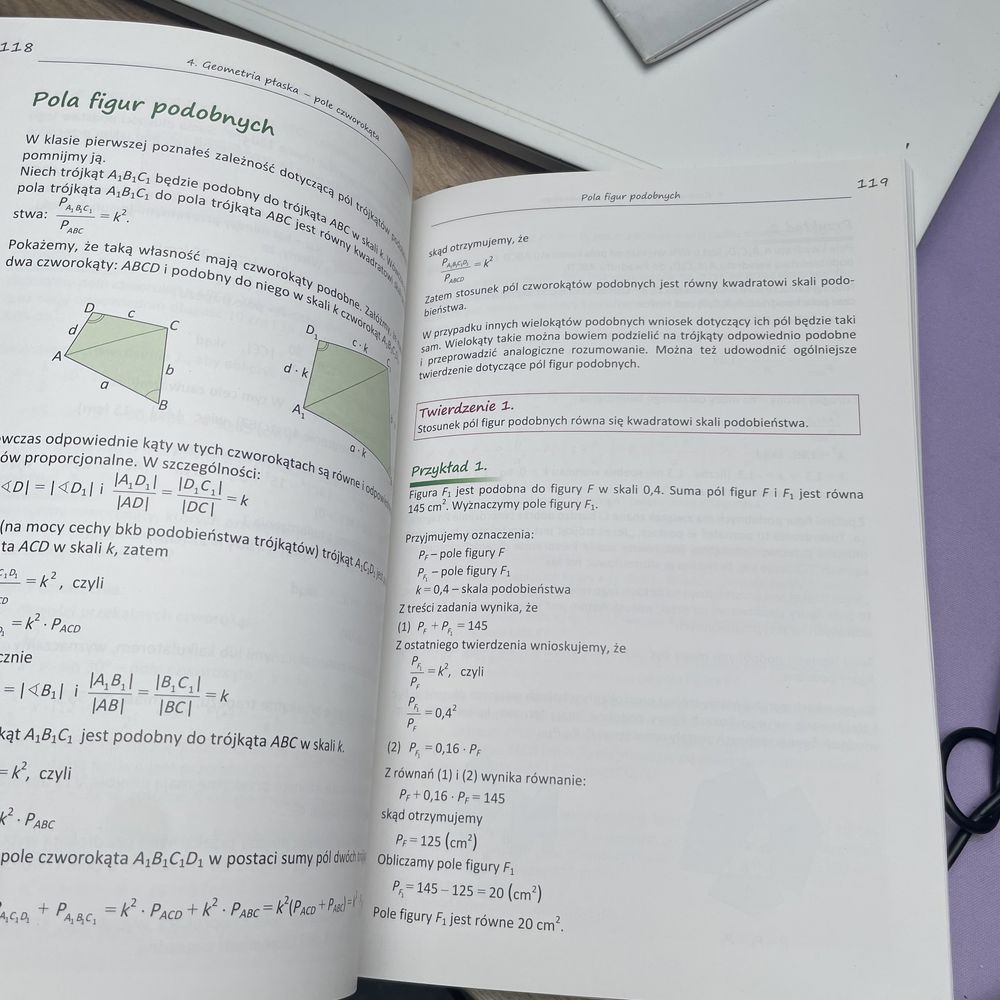 118
4. Geometria płaska – pole czworokąta
Pola figur podobnych
W klasie pierwszej poznałeś zależność dotyczącą pól trójkątów
pomnijmy ją.
Niech trójkąt A₁B₁C₁ będzie podobny do trójkąta ABC w skali k.
pola trójkąta A₁B₁C₁ do pola trójkąta ABC jest równy kwadratowi
stwa: P_A₁B₁C₁ / P_ABC = k².
Pokażemy, że taką własność mają czworokąty podobne. Załóżmy, że
dwa czworokąty: ABCD i podobny do niego w skali k czworokąt
D c C
d
A
b
a
B
D₁ c · k
d · k
A₁
a · k
wczas odpowiednie kąty w tych czworokątach są równe i
ów proporcjonalne. W szczególności:
∢D| = |∢D₁| i |A₁D₁| / |AD| = |D₁C₁| / |DC| = k
(na mocy cechy bkb podobieństwa trójkątów) trójkąt A₁C₁D₁
ta ACD w skali k, zatem
= k², czyli
= k² · P_ACD
cznie
= |∢B₁| i |A₁B₁| / |AB| = |B₁C₁| / |BC| = k
kąt A₁B₁C₁ jest podobny do trójkąta ABC w skali k.
= k², czyli
k² · P_ABC
pole czworokąta A₁B₁C₁D₁ w postaci sumy pól dwóch
P_A₁C₁D₁ + P_A₁B₁C₁ = k² · P_ACD + k² · P_ABC = k²(P_ACD + P_ABC) =
Pola figur podobnych
119
skąd otrzymujemy, że
P_A₁B₁C₁D₁ / P_ABCD = k²
Zatem stosunek pól czworokątów podobnych jest równy kwadratowi skali podo-
bieństwa.
W przypadku innych wielokątów podobnych wniosek dotyczący ich pól będzie taki
sam. Wielokąty takie można bowiem podzielić na trójkąty odpowiednio podobne
i przeprowadzić analogiczne rozumowanie. Można też udowodnić ogólniejsze
twierdzenie dotyczące pól figur podobnych.
Twierdzenie 1.
Stosunek pól figur podobnych równa się kwadratowi skali podobieństwa.
Przykład 1.
Figura F₁ jest podobna do figury F w skali 0,4. Suma pól figur F i F₁ jest równa
145 cm². Wyznaczymy pole figury F₁.
Przyjmujemy oznaczenia:
P_F – pole figury F
P_F₁ – pole figury F₁
k = 0,4 – skala podobieństwa
Z treści zadania wynika, że
(1) P_F + P_F₁ = 145
Z ostatniego twierdzenia wnioskujemy, że
P_F₁ / P_F = k², czyli
P_F₁ / P_F = 0,4²
(2) P_F₁ = 0,16 · P_F
Z równań (1) i (2) wynika równanie:
P_F + 0,16 · P_F = 145
skąd otrzymujemy
P_F = 125 (cm²)
Obliczamy pole figury F₁
P_F₁ = 145 – 125 = 20 (cm²)
Pole figury F₁ jest równe 20 cm².